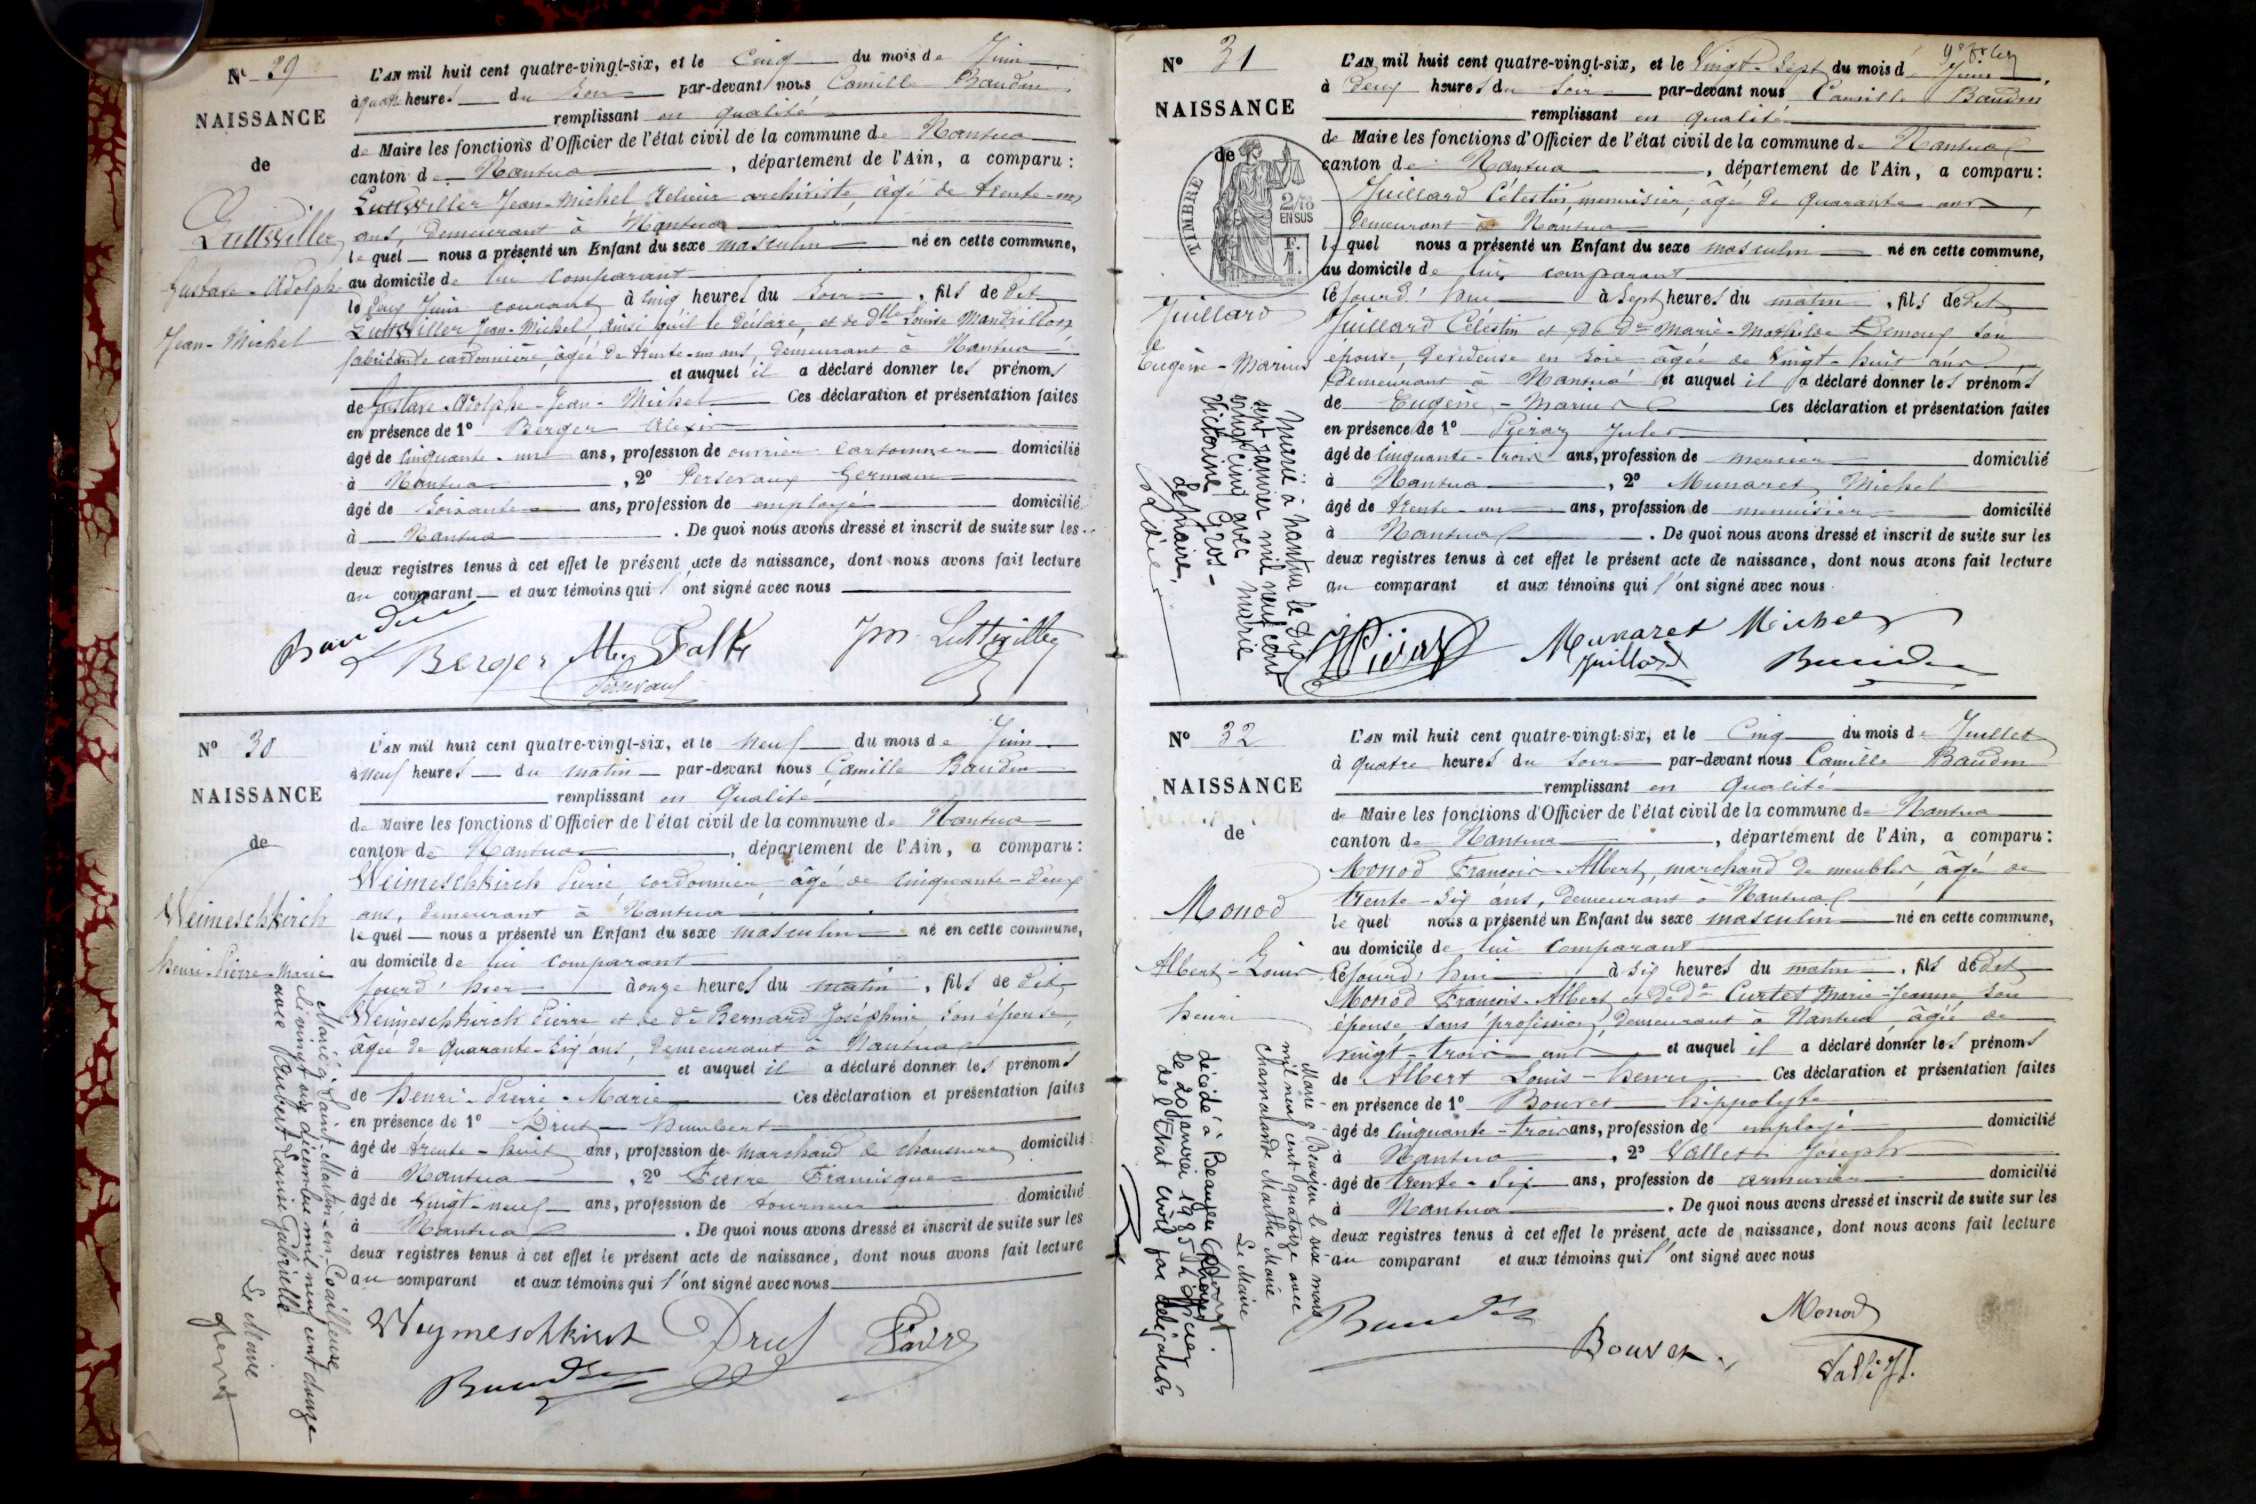 N° 29
NAISSANCE
de
Luttwiller
Gustave-Adolphe
Jean-Michel
L'AN mil huit cent quatre-vingt-six, et le cinq du mois de Juin
à quatre heures du soir par-devant nous Camille Baudin
remplissant en qualité
de Maire les fonctions d'Officier de l'état civil de la commune de Nantua
canton de Nantua, département de l'Ain, a comparu :
Luttwiller Jean-Michel âgé de trente-un
ans, demeurant à Nantua
lequel nous a présenté un Enfant du sexe masculin né en cette commune,
au domicile de lui comparant
le deux Juin courant à cinq heures du soir, fils de dit
Luttwiller Jean-Michel, ainsi qu'il le déclare, et de dlle Louise Mandrillon
fabricante cartonnière, âgée de trente-un ans, demeurant à Nantua
et auquel il a déclaré donner les prénoms
de Gustave-Adolphe-Jean-Michel Ces déclaration et présentation faites
en présence de 1° Berger Alexis
âgé de cinquante-un ans, profession de ouvrier cartonnier domicilié
à Nantua, 2° Perseraux Germain
âgé de soixante ans, profession de employé domicilié
à Nantua. De quoi nous avons dressé et inscrit de suite sur les
deux registres tenus à cet effet le présent acte de naissance, dont nous avons fait lecture
au comparant et aux témoins qui l'ont signé avec nous
Baudin Berger Jm Luttwiller
N° 30
NAISSANCE
de
Weimeschkirch
henri-Pierre-Marie
L'AN mil huit cent quatre-vingt-six, et le neuf du mois de Juin
à neuf heures du matin par-devant nous Camille Baudin
remplissant en qualité
de Maire les fonctions d'Officier de l'état civil de la commune de Nantua
canton de Nantua, département de l'Ain, a comparu :
Weimeschkirch Pierre, cordonnier, âgé de cinquante-deux
ans, demeurant à Nantua
lequel nous a présenté un Enfant du sexe masculin né en cette commune,
au domicile de lui comparant
hier à onze heures du matin, fils de dit
Weimeschkirch Pierre et de de Bernard Joséphine, son épouse,
âgée de quarante-six ans, demeurant à Nantua
et auquel il a déclaré donner les prénoms
de henri-Pierre-Marie Ces déclaration et présentation faites
en présence de 1° Drut humbert
âgé de trente-huit ans, profession de marchand de chaussure domicilié
à Nantua, 2° Favre Francisque
âgé de vingt-neuf ans, profession de tourneur domicilié
à Nantua. De quoi nous avons dressé et inscrit de suite sur les
deux registres tenus à cet effet le présent acte de naissance, dont nous avons fait lecture
au comparant et aux témoins qui l'ont signé avec nous
Marié à Saint-Martin-en-Coailleuse
le vingt onze décembre mil neuf cent douze
avec Robert Louise Gabrielle
Le Maire
Weymeschkirch Drut Favre
Baudin
N° 31
NAISSANCE
de
TIMBRE
2/10
EN SUS
F.
Juillard
Eugène-Marius
L'AN mil huit cent quatre-vingt-six, et le vingt-sept du mois de Juin
à deux heures du soir par-devant nous Camille Baudin
remplissant en qualité
de Maire les fonctions d'Officier de l'état civil de la commune de Nantua
canton de Nantua, département de l'Ain, a comparu :
Juillard Célestin, menuisier, âgé de quarante ans,
demeurant à Nantua
lequel nous a présenté un Enfant du sexe masculin né en cette commune,
au domicile de lui comparant
cejourd'hui à sept heures du matin, fils de dit
Juillard Célestin et de de Marie-Mathilde son
épouse, dévideuse en soie âgée de vingt-huit ans,
demeurant à Nantua et auquel il a déclaré donner les prénoms
de Eugène-Marius Ces déclaration et présentation faites
en présence de 1° Piéraz Jules
âgé de cinquante-trois ans, profession de domicilié
à Nantua, 2° Munaret Michel
âgé de trente-un ans, profession de menuisier domicilié
à Nantua. De quoi nous avons dressé et inscrit de suite sur les
deux registres tenus à cet effet le présent acte de naissance, dont nous avons fait lecture
au comparant et aux témoins qui l'ont signé avec nous
Marié à Nantua le dix
sept janvier mil neuf cent
vingt cinq avec Marie
Victorine Gros-
Munaret Michel
Juillard Baudin
N° 32
NAISSANCE
de
Monod
Albert-Louis
henri
L'AN mil huit cent quatre-vingt-six, et le cinq du mois de Juillet
à quatre heures du soir par-devant nous Camille Baudin
remplissant en qualité
de Maire les fonctions d'Officier de l'état civil de la commune de Nantua
canton de Nantua, département de l'Ain, a comparu :
Monod François-Albert, marchand de meubles, âgé de
trente-six ans, demeurant à Nantua
lequel nous a présenté un Enfant du sexe masculin né en cette commune,
au domicile de lui comparant
cejourd'hui à six heures du matin, fils de dit
Monod François-Albert et de de Curtet Marie-Jeanne, son
épouse sans profession, demeurant à Nantua âgée de
vingt-trois ans et auquel il a déclaré donner les prénoms
de Albert Louis-henri Ces déclaration et présentation faites
en présence de 1° Bouvet hippolyte
âgé de cinquante-trois ans, profession de employé domicilié
à Nantua, 2° Vallet Joseph
âgé de trente-six ans, profession de armurier domicilié
à Nantua. De quoi nous avons dressé et inscrit de suite sur les
deux registres tenus à cet effet le présent acte de naissance, dont nous avons fait lecture
au comparant et aux témoins qui l'ont signé avec nous
Marié à Beaujeu le seize mars
mil neuf cent quatorze avec
Chamarande Marthe Marie
Le Maire
décédé à Beaujeu (Rhône)
le 20 janvier 1985 L'officier
de l'Etat civil par délégation
Baudin Bouvet Monod